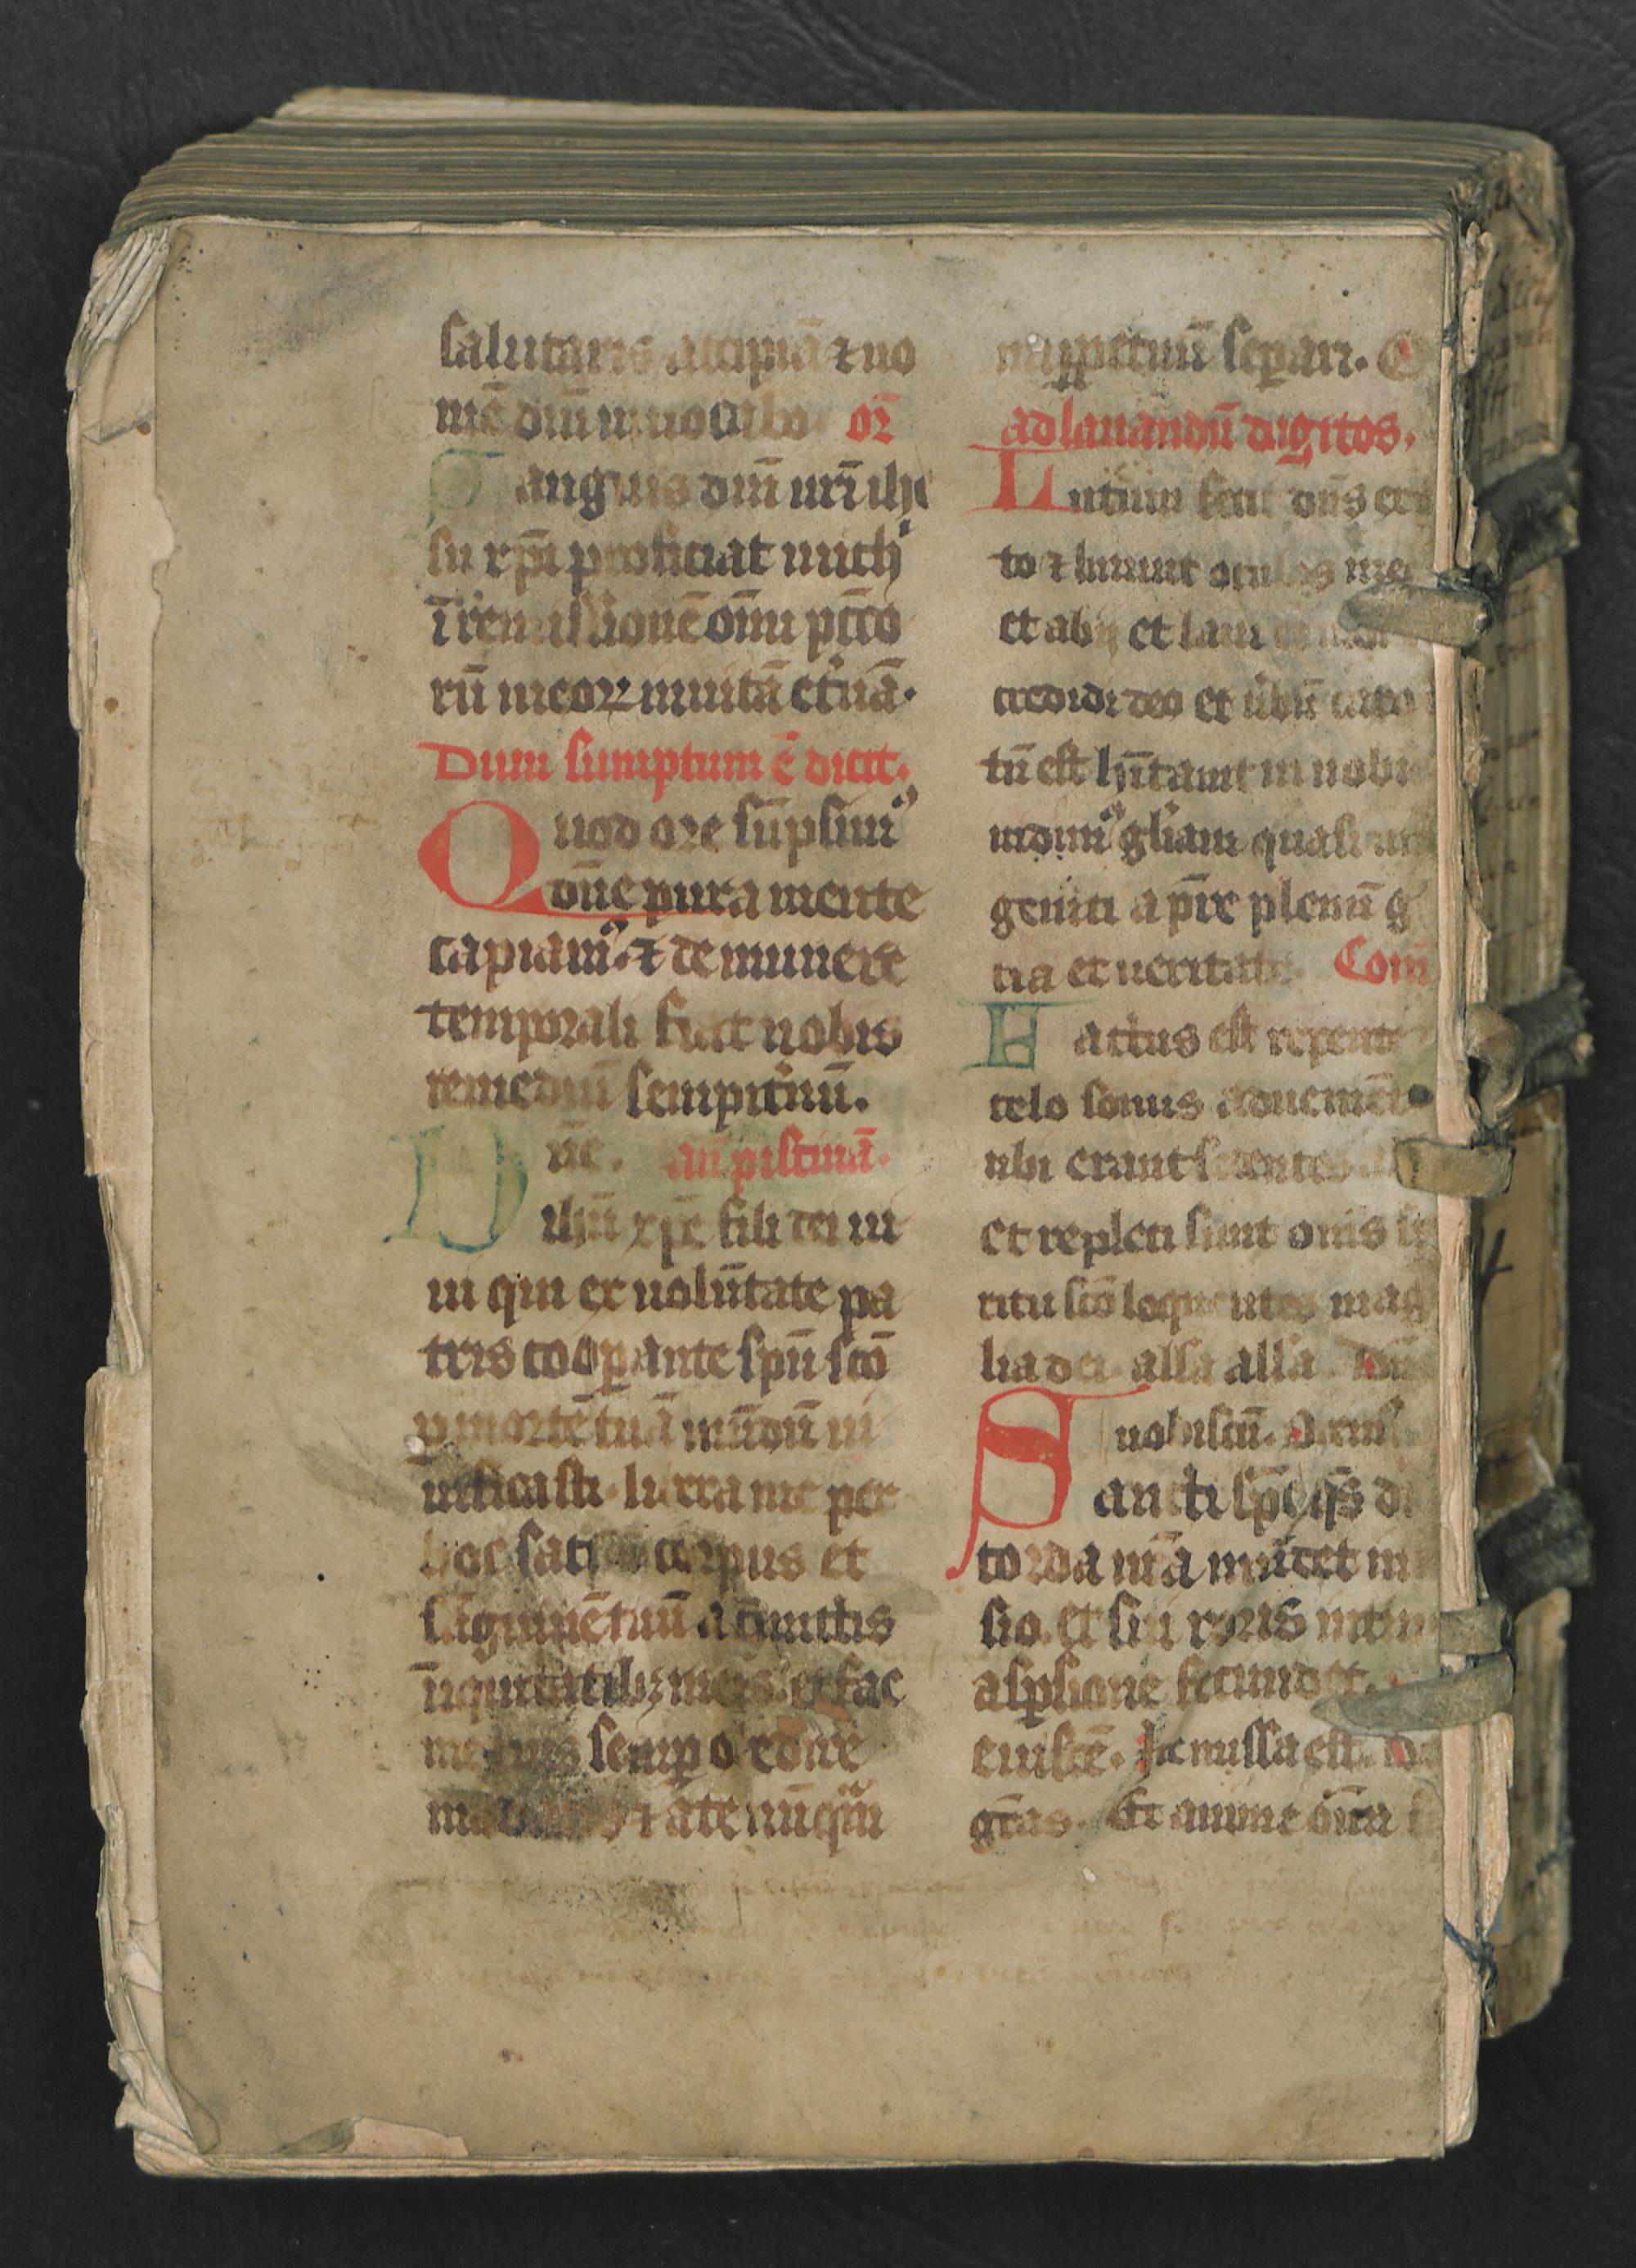 salutaris accipiā ⁊ no
mē dn̄i inuocabo oȓ
Sanguis dn̄i nrī ihe
su xp̄i proficiat mich
ī remissionē om̄i pctō
rū meoꝝ in uitā et̓nā.
Dum sumptum ē dicit.
Quod ore sūpsim⁹
dn̄e pura mente
capiam⁹. ⁊ de munere
temporali fiat nobis
remediū sempit̓nū.
Dn̄e. an̄ piscinā.
ihū xp̄e fili dei ui
ui qui ex uolūtate pa
tris coop̱ante spū scō
ꝑ mortē tuā mūdū ui
uificasti libera me per
hoc sac corpus et
sāguinē tuū a cūctis
īiquitatibꝫ meis et fac
me semp̱ obedire
mandatis ⁊ a te nūqͣm
inp̱petuū sep̱ari. Q
ad lauandū digitos.
Lutum fecit dn̄s ex
to ⁊ liniuit oculos meos
et abij et laui et
credidi deo et ūbū caro
tū est ⁊ hītauit in nobis
uidim⁹ gl̓iam quasi
geniti a pr̄e plenū g
tia et ueritate. Com̄
Factus est repente
celo sonus aduenien
ubi erant sedentes
et repleti sunt om̄s sp
ritu scō loquentes mag
lia dei all̓a all̓a. Dn̄s
uobiscū. Orem⁹
Sancti sp̄c qs̄ d
corda nrā mūdet in
sio. et sui roris intim
asp̱sione fecundet.
eiusdē. Ite missa est. Do
grās. Et aīme om̄i